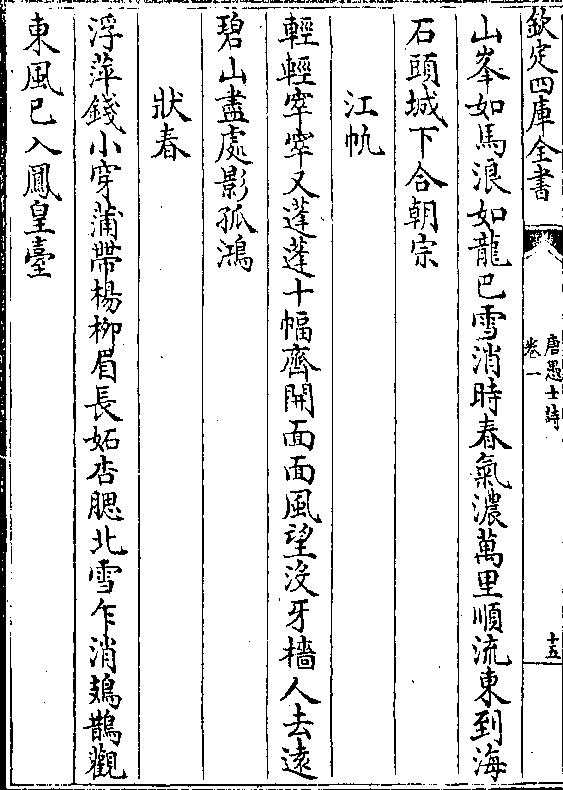 欽定四庫全書
唐愚士詩
卷一
十五
山峯如馬浪如龍巴雪消時春氣濃萬里順流東到海
石頭城下合朝宗
江帆
輕輕窣窣又蓬蓬十幅齊開面面風望沒牙檣人去遠
碧山盡處影孤鴻
狀春
浮萍錢小穿蒲帶楊柳眉長妬杏腮北雪乍消鳷鵲觀
東風已入鳳皇臺